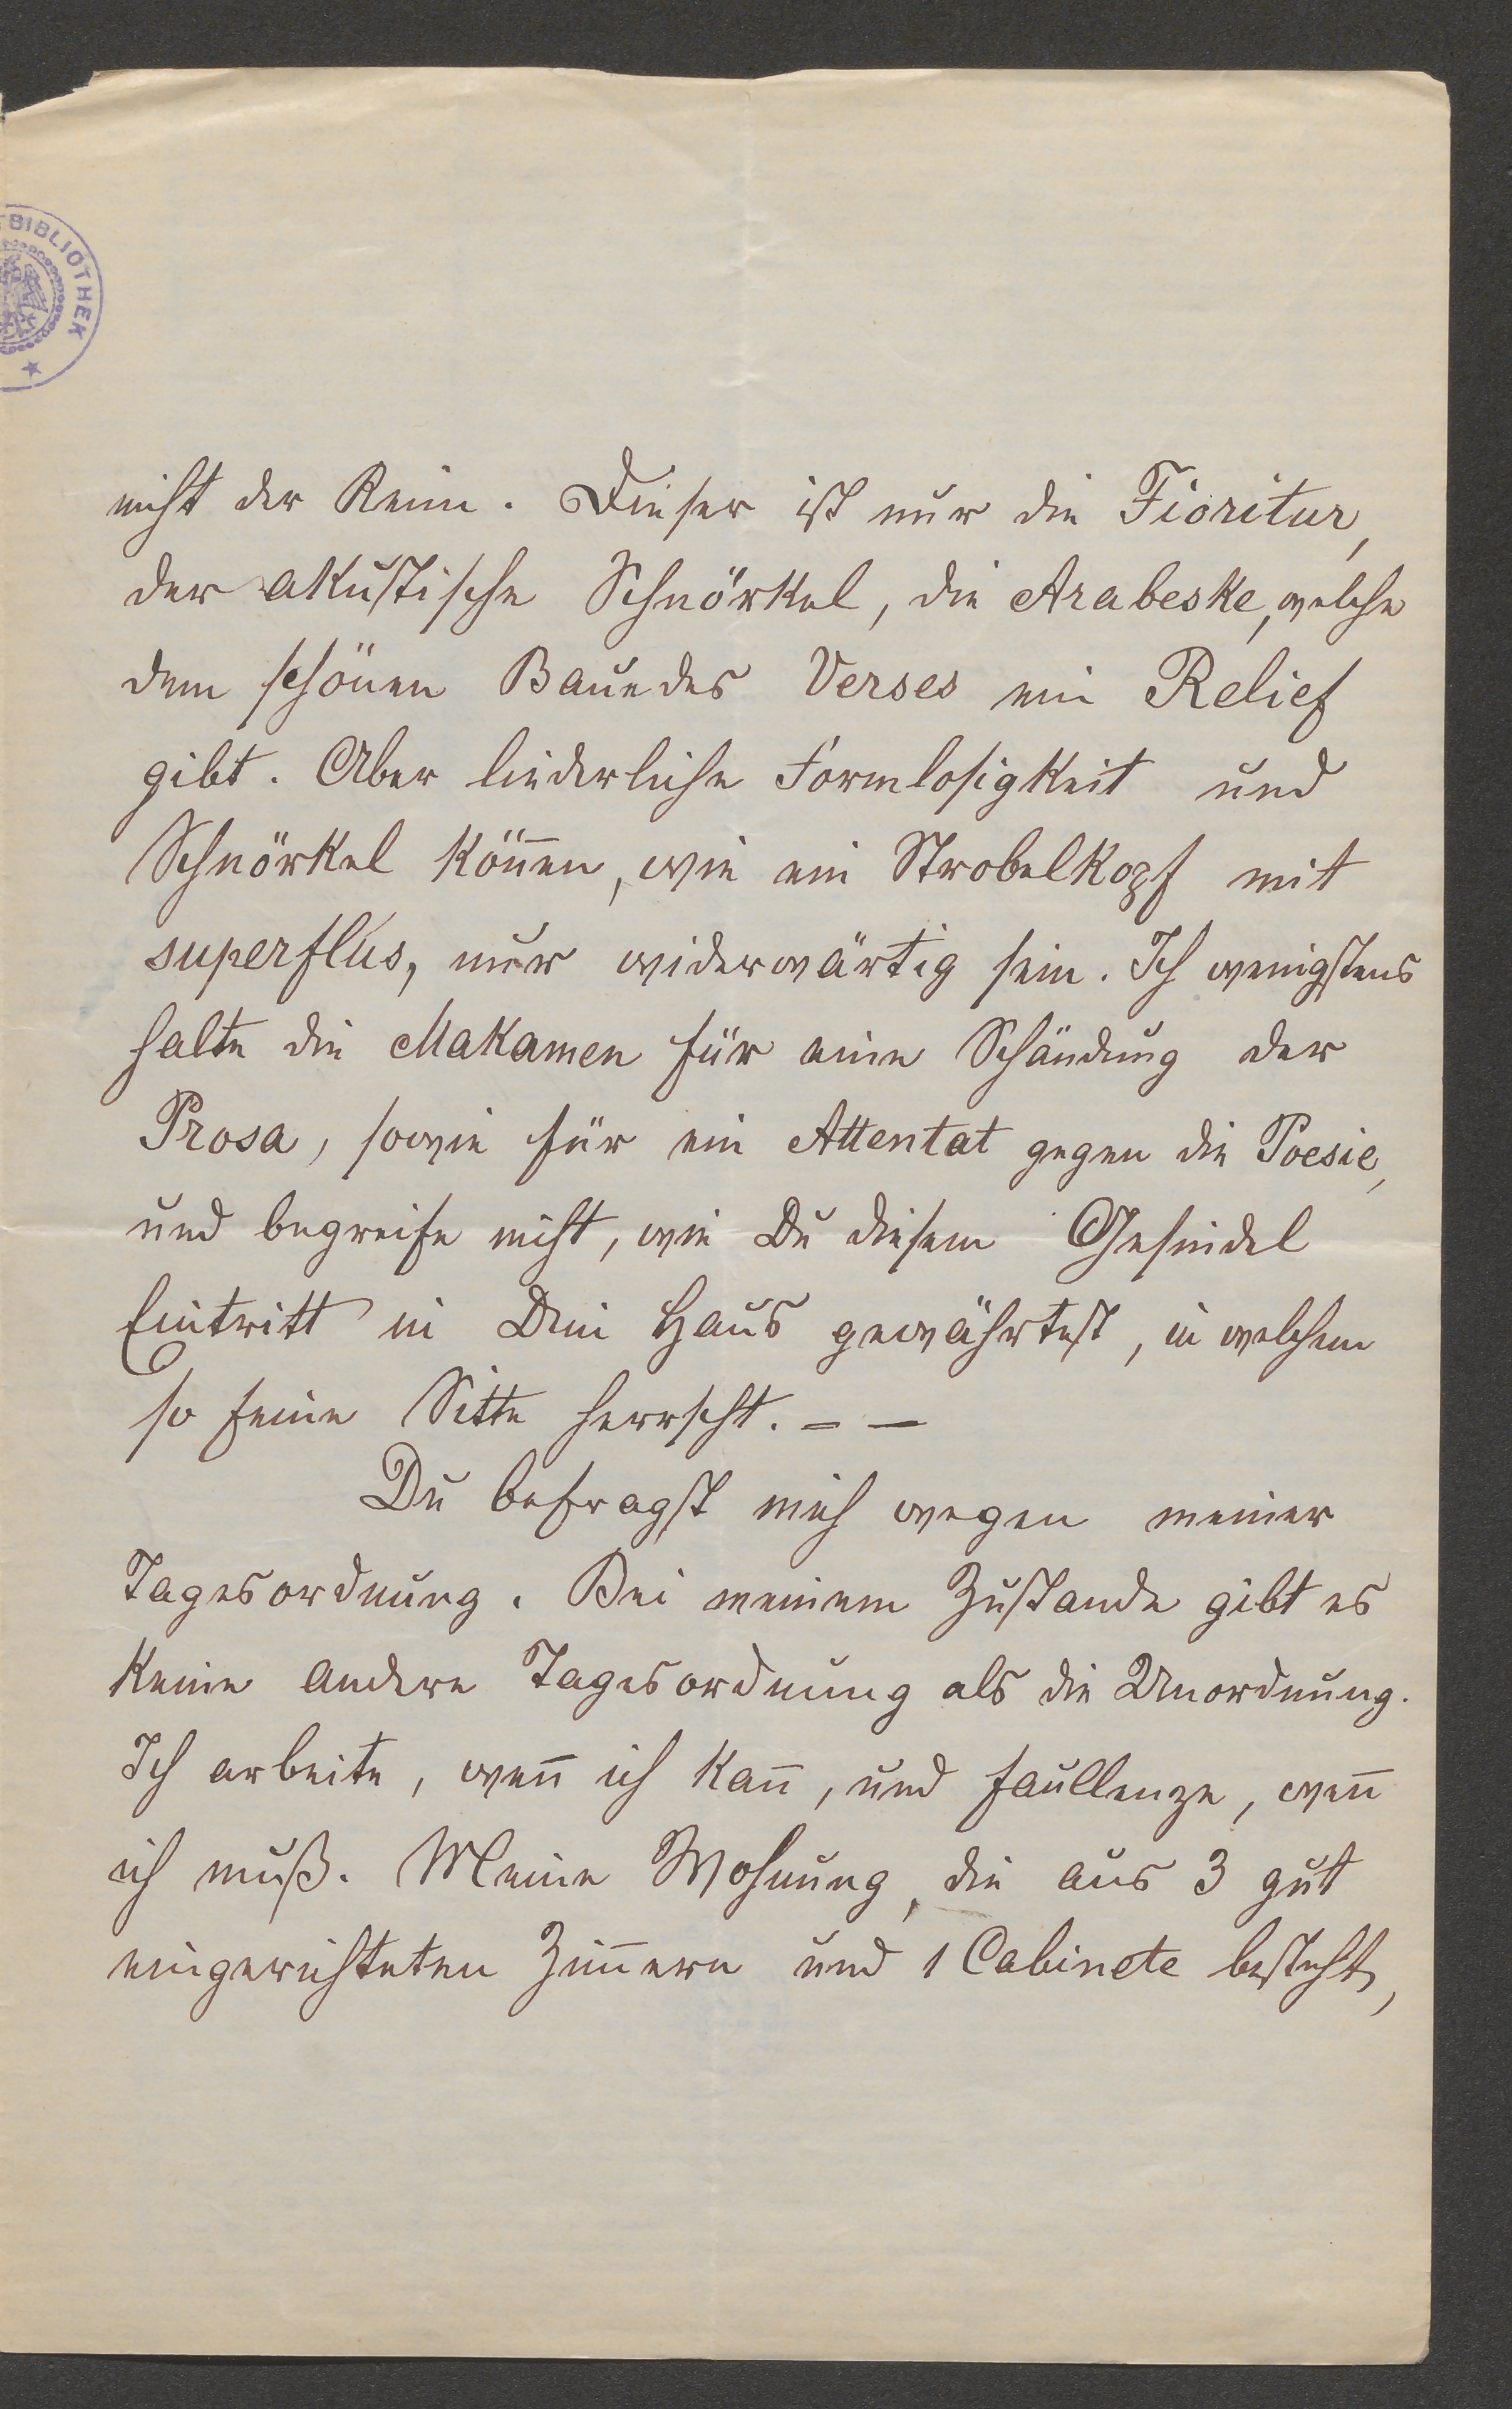 BIBLIOTHEK
nicht der Reim. Dieser ist nur die Fioritur,
der akustische Schnörkel, die Arabeske, welche
dem schönen Baue des Verses ein Relief
gibt. Aber liederliche Formlosigkeit und
Schnörkel kön̄en, wie ein Strobelkopf mit
superflus, nur widerwärtig sein. Ich wenigstens
halte die Makamen für eine Schändung der
Prosa, sowie für ein Attentat gegen die Poesie,
und begreife nicht, wie Du diesem Gesindel
Eintritt in Dein Haus gewährtest, in welchem
so feine Sitte herrscht. – –
Du befragst mich wegen meiner
Tagesordnung. Bei meinem Zustande gibt es
keine andere Tagesordnung als die Unordnung.
Ich arbeite, wen̄ ich kan̄, und faullenze, wen̄
ich muß. Meine Wohnung, die aus 3 gut
eingerichteten Zim̄ern und 1 Cabinete besteht,